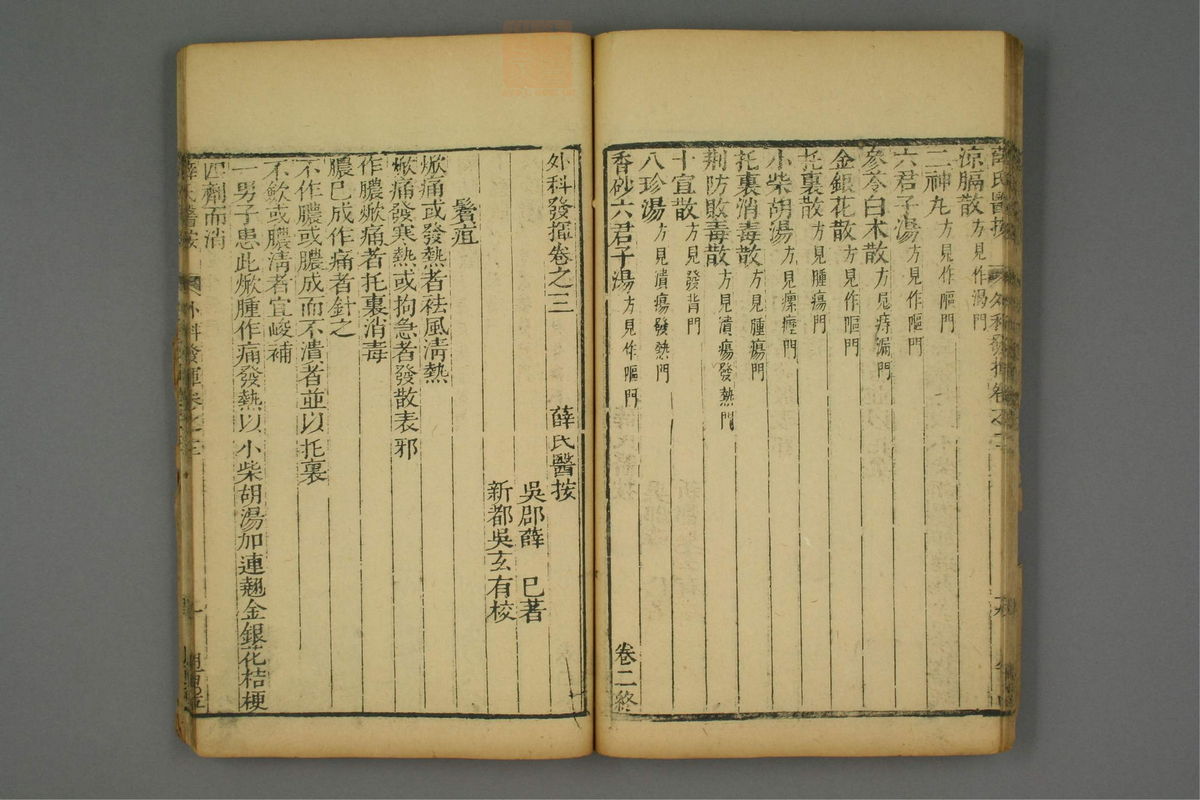 涼膈散方見作渴門
二神丸方見作嘔門
六君子湯方見作嘔門
參苓白朮散方見痔漏門
金銀花散方見作嘔門
托裏散方見腫瘍門
小柴胡湯方見瘰癧門
托裏消毒散方見腫瘍門
荊防敗毒散方見潰瘍發熱門
十宣散方見發背門
八珍湯方見潰瘍發熱門
香砂六君子湯方見作嘔門 卷二終
外科發揮卷之三 薛氏醫按
吳郡薛 已著
新都吳玄有校
鬢疽
焮痛或發熱者祛風清熱
焮痛發寒熱或拘急者發散表邪
作膿焮痛者托裏消毒
膿已成作痛者針之
不作膿或膿成而不潰者並以托裏
不斂或膿清者宜峻補
一男子患此焮腫作痛發熱以小柴胡湯加連翹金銀花桔梗
四劑而消